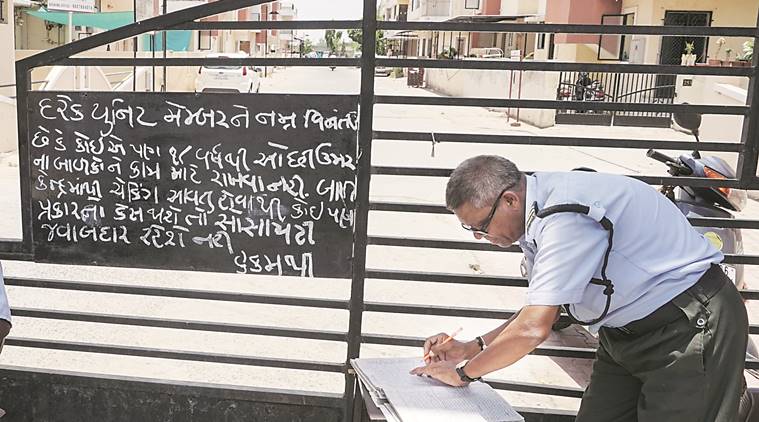 દરેક યુનિટ મેમ્બરને નમ્ર વિનંતી
છે કે કોઈએ પાગ ૧૮ વર્ષથી ઓછી ઉમર
ના બાળકોને કામ માટે રાખવા નહી. બાળ
કેન્દ્રમાંથી ચેકિંગ આવતુ હોવાથી કોઈ પણ
પ્રકારના કેસ થશે તો સોસાયટી
જવાબદાર રહેશે નહી
હુકમથી